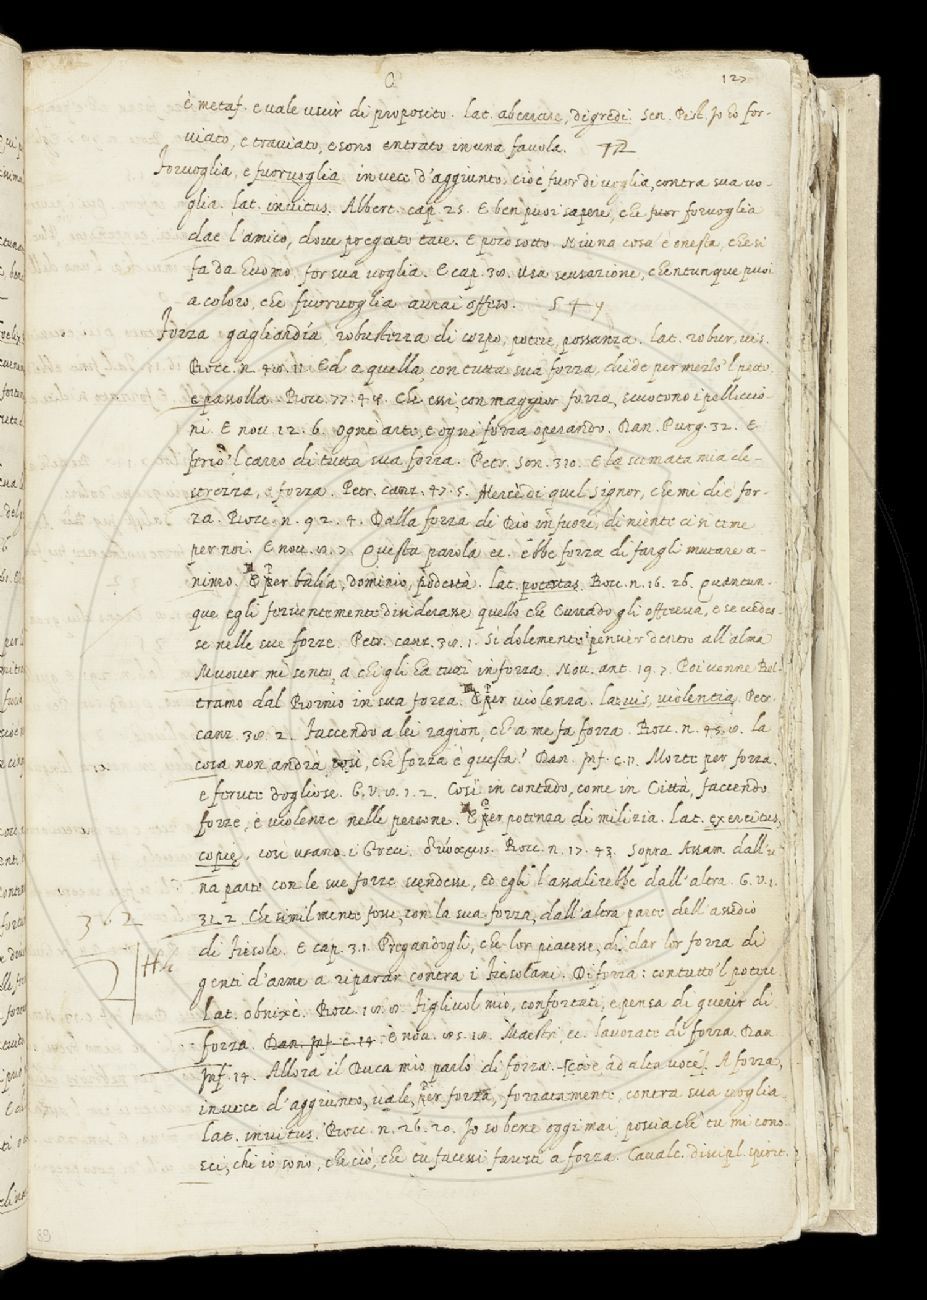 127
è metaf. e vale uscir di proposito. lat. aberrare, digredi. Sen. Pist. Io so for-
viato, e traviato, e sono entrato in una favola.
Forvoglia, e fuorvoglia in vece d'aggiunto, cioè fuor di voglia, contra sua vo-
glia. lat. invitus. Albert. cap. 25. E ben puoi sapere, che fuor forvoglia
dae l'amico, dove pregato tace. E poco sotto. Niuna cosa è onesta, che si
fa da huomo for sua voglia. E cap. 38. usa scusazione, chentunque puoi
a coloro, che fuorvoglia avrai offeso. 544
Forza gagliardía, robustezza di corpo, potere, possanza. lat. robur, vis.
Bocc. n. 48. 11. Ed a quella con tutta sua forza, diede per mezzo 'l petto,
e passolla. Bocc. 77. 48. Che essi, con maggior forza, scuotono i pelliccio-
ni. E nov. 12. 6. ogni arte, e ogni forza operando. Dan. Purg. 32. E
ferio 'l carro di tutta sua forza. Petr. Son. 310. E la stimata mia de-
strezza, e forza. Petr. canz. 47. 5. Mercè di quel Signor, che mi diè for-
za. Bocc. n. 92. 4. Dalla forza di Dio in fuori, di niente ci si teme
per noi. E nov. 8. 7. Questa parola ec. ebbe forza di fargli mutare a-
nimo. E per balìa, dominio, podestà. lat. potestas. Bocc. n. 16. 26. Quantun-
que egli ferventemente disiderasse quello che Currado gli offereva, e se vedes-
se nelle sue forze. Petr. canz. 38. 1. Sì dolemente i pensier dentro all'alma
Muover mi sento, a chi gli ha tutti in forza. Nov. ant. 19. 7. Poi venne Bel-
tramo dal Bornio in sua forza. E per violenza. lat. vis, violentia. Petr.
canz. 38. 2. Facendo a lei ragion, ch'a me fa forza. Bocc. n. 45. 8. la
cosa non andrà così, che forza è questa? Dan. Inf. c. 11. Morte per forza,
e ferute dogliose. G. V. 8. 1. 2. Così in contado, come in Città, facendo
forze, e violenze nelle persone. E per potenza di milizia. Lat. exercitus,
copiæ, così usano i Greci δύναμις. Bocc. n. 17. 43. Sopra Assam dall'u-
na parte con le sue forze scendesse, ed egli l'assalirebbe dall'altra. G. V. 1.
31. 2. Che similmente fosse, con la sua forza, dall'altra parte dell'assedio
362
di Fiesole. E cap. 31. Pregandogli, che lor piacesse, di dar lor forza di
genti d'arme a riparar contra i Fiesolani. Di forza: con tutto 'l potere.
Lat. obnixè. Bocc. 18. 8. Figliuol mio, confortati, e pensa di guerir di
forza. Dan. Inf. c. 14. E nov. 85. 18. Maestri, ec. lavorate di forza. Dan.
Inf. 14. Allora il Duca mio parlò di forza [cioè ad alta voce]. A forza,
in vece d'aggiunto, vale, per forza, forzatamente, contra sua voglia.
Lat. invitus. Bocc. n. 26. 20. Io so bene oggimai, posciachè tu mi cono-
sci, chi io sono, che ciò, che tu facessi faresti a forza. Cavalc. discipl. spirit.
89